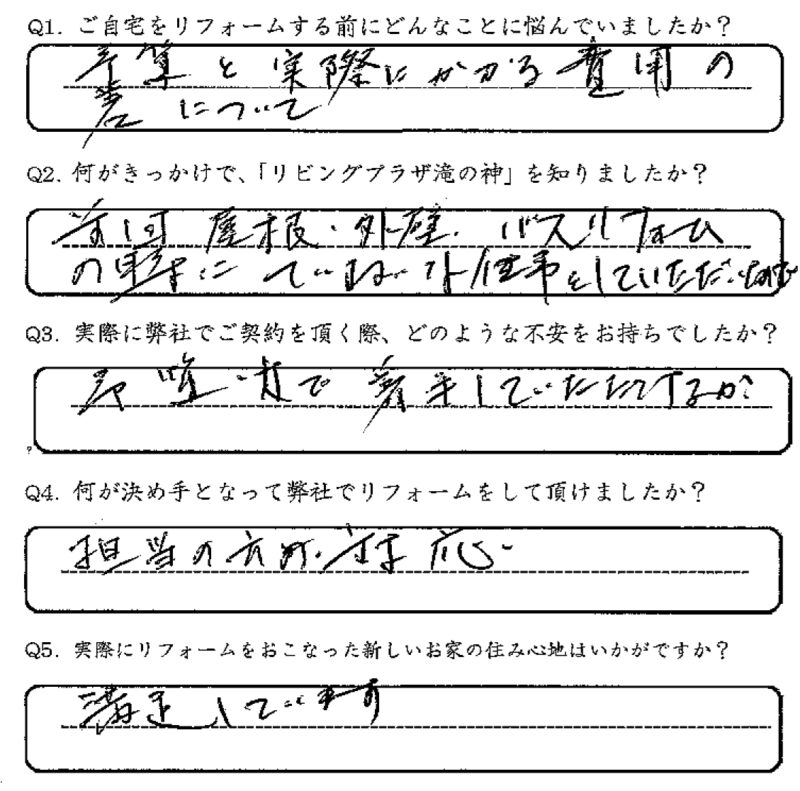 Q1. ご自宅をリフォームする前にどんなことに悩んでいましたか？
予算と実際にかかる費用の
差について
Q2. 何がきっかけで、「リビングプラザ滝の神」を知りましたか？
前回 屋根・外壁、バスリフォーム
の時に ていねいな仕事をしていただいた
Q3. 実際に弊社でご契約を頂く際、どのような不安をお持ちでしたか？
で着手していただけるか？
Q4. 何が決め手となって弊社でリフォームをして頂けましたか？
担当の方の対応
Q5. 実際にリフォームをおこなった新しいお家の住み心地はいかがですか？
満足しています